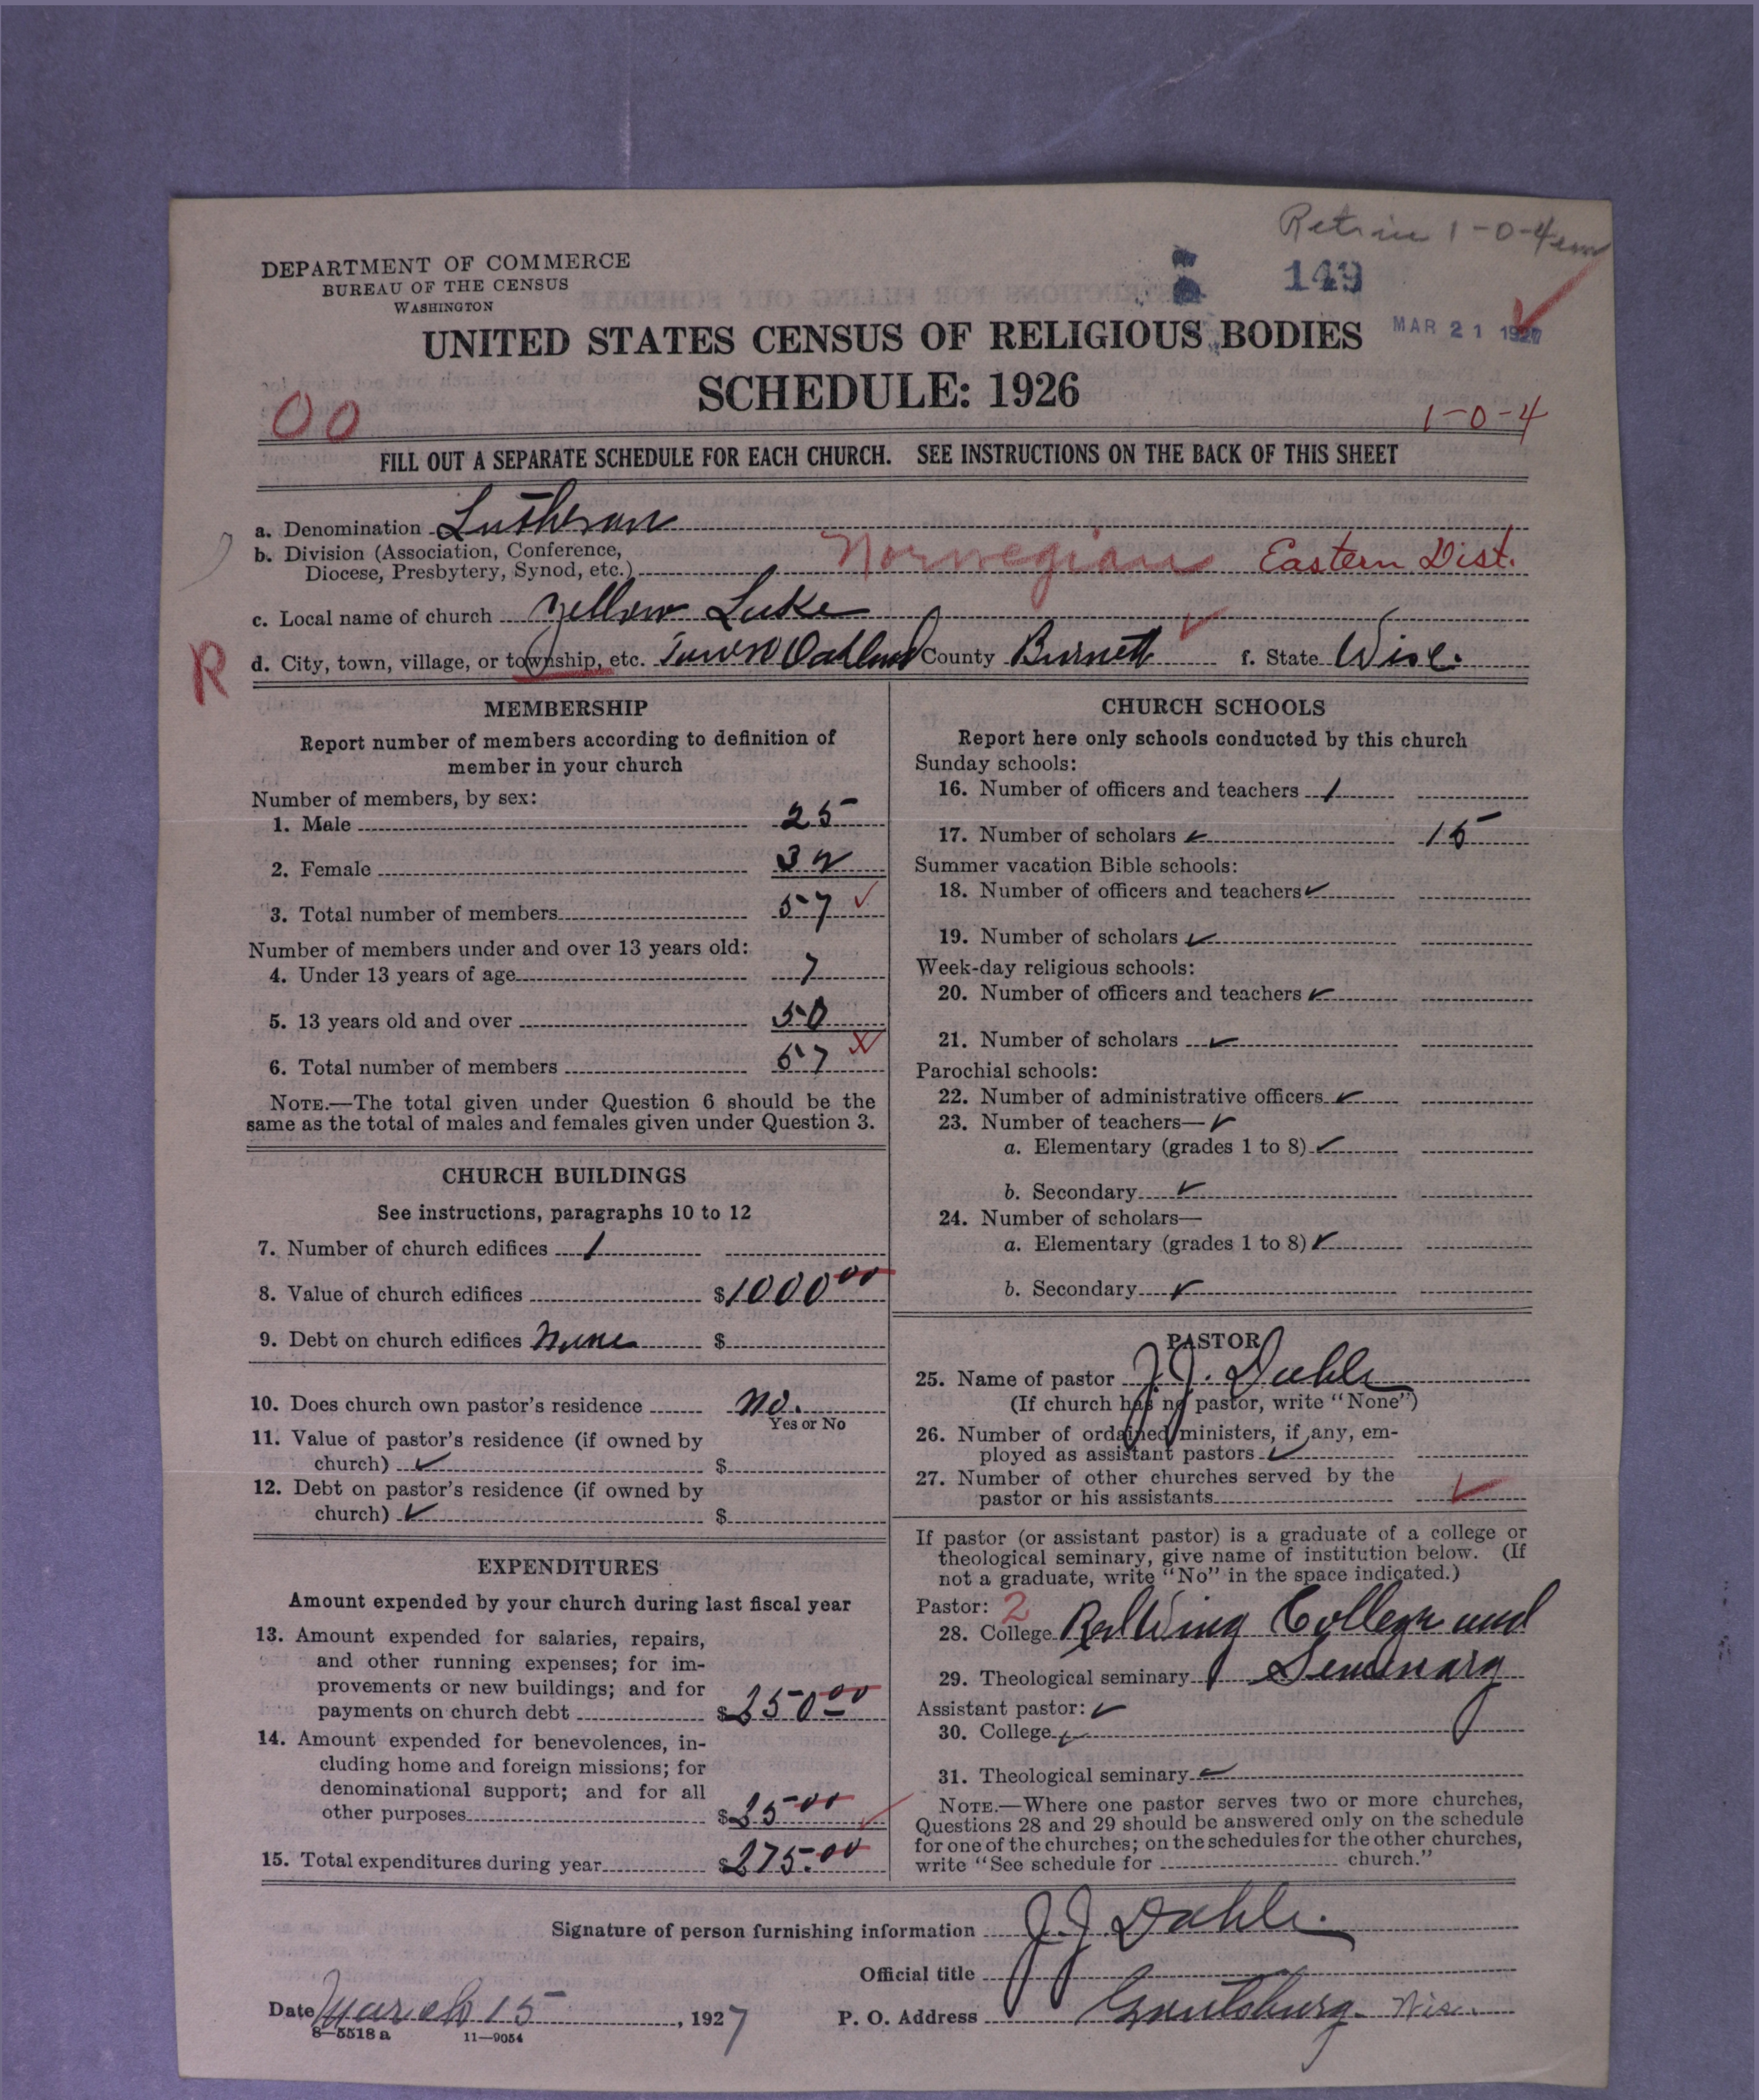 Retrine 1-0-4
149
DEPARTMENT OF COMMERCE
BUREAU OF THE CENSUS
WASHINGTON
MAR 21 1927
UNITED STATES CENSUS OF RELIGIOUS BODIES
SCHEDULE: 1926
00
1-0-4
FILL OUT A SEPARATE SCHEDULE FOR EACH CHURCH. SEE INSTRUCTIONS ON THE BACK OF THIS SHEET
a. Denomination Lutheran
b. Division (Association, Conference,
Diocese, Presbytery, Synod, etc.) Norwegian Eastern Dist.
c. Local name of church Yellow Lake
R d. City, town, village, or township, etc. Town Oakland County Burnett ✓ f. State Wisc.
MEMBERSHIP
Report number of members according to definition of
member in your church
Number of members, by sex:
1. Male 25
2. Female 32
3. Total number of members 57 ✓
Number of members under and over 13 years old:
4. Under 13 years of age 7
5. 13 years old and over 50
6. Total number of members 57
NOTE.—The total given under Question 6 should be the
same as the total of males and females given under Question 3.
CHURCH BUILDINGS
See instructions, paragraphs 10 to 12
7. Number of church edifices 1
8. Value of church edifices $1000 00
9. Debt on church edifices None $
10. Does church own pastor's residence No.
Yes or No
11. Value of pastor's residence (if owned by
church) ✓ $
12. Debt on pastor's residence (if owned by
church) ✓ $
EXPENDITURES
Amount expended by your church during last fiscal year
13. Amount expended for salaries, repairs,
and other running expenses; for im-
provements or new buildings; and for
payments on church debt $250 00
14. Amount expended for benevolences, in-
cluding home and foreign missions; for
denominational support; and for all
other purposes $25 00
15. Total expenditures during year $275.00
CHURCH SCHOOLS
Report here only schools conducted by this church
Sunday schools:
16. Number of officers and teachers 1
17. Number of scholars ✓ 15
Summer vacation Bible schools:
18. Number of officers and teachers ✓
19. Number of scholars ✓
Week-day religious schools:
20. Number of officers and teachers ✓
21. Number of scholars ✓
Parochial schools:
22. Number of administrative officers ✓
23. Number of teachers— ✓
a. Elementary (grades 1 to 8) ✓
b. Secondary ✓
24. Number of scholars—
a. Elementary (grades 1 to 8) ✓
b. Secondary ✓
PASTOR
25. Name of pastor J.J. Dahle
(If church has no pastor, write "None")
26. Number of ordained ministers, if any, em-
ployed as assistant pastors ✓
27. Number of other churches served by the
pastor or his assistants ✓
If pastor (or assistant pastor) is a graduate of a college or
theological seminary, give name of institution below. (If
not a graduate, write "No" in the space indicated.)
Pastor: 2
28. College Red Wing College and
29. Theological seminary Seminary
Assistant pastor: ✓
30. College ✓
31. Theological seminary ✓
NOTE.—Where one pastor serves two or more churches,
Questions 28 and 29 should be answered only on the schedule
for one of the churches; on the schedules for the other churches,
write "See schedule for church."
Signature of person furnishing information J.J. Dahle.
Official title
Date March 15, 1927 P. O. Address Grantsburg Wisc.
8—5518 a 11—9054